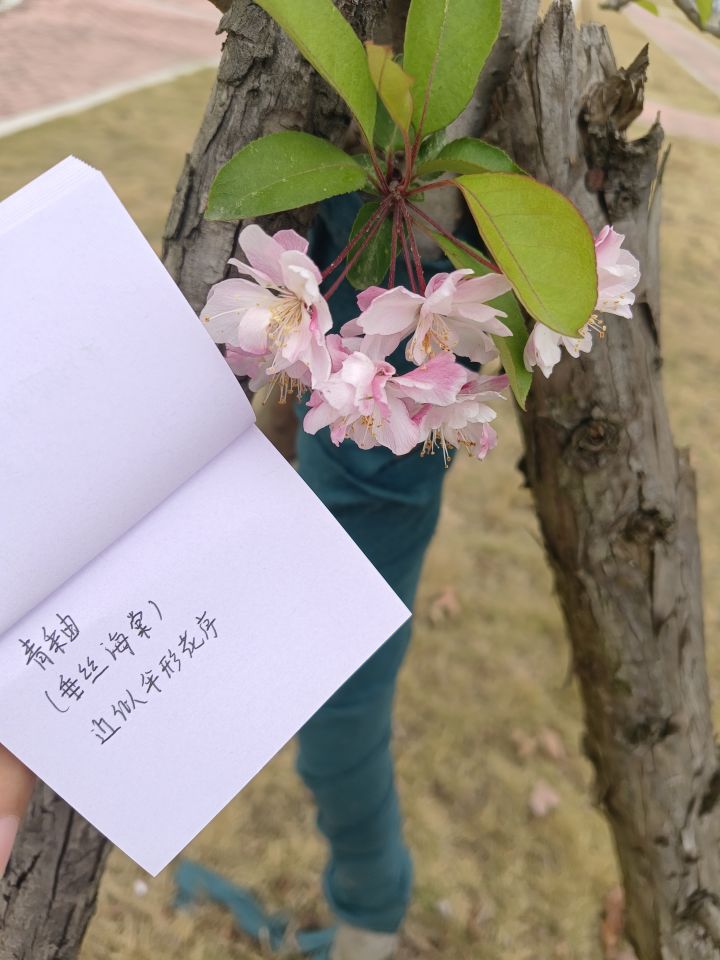 青釉
(垂丝海棠)
近似伞形花序